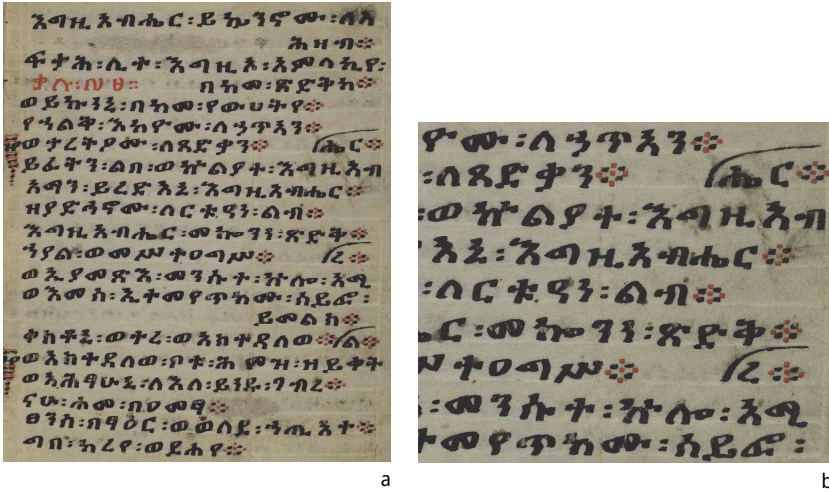 እግዚአብሔር፡ይኴንኖሙ፡ለአ
ሕዛብ፨
ፍታሕ፡ሊተ፡እግዚኦ፡አምላኪየ፡
በከመ፡ጽድቅከ፨
ወይኩነኒ፡በከመ፡የውሀትየ፨
የኃልቅ፡እከዮሙ፡ለኃጥኣን፨
ወታረትዖሙ፡ለጻድቃን፨ ሔር፨
ይፈትን፡ልበ፡ወኵልያተ፡እግዚአብ
አማን፡ይረድአኒ፡እግዚአብሔር፨
ዘያድኅኖሙ፡ለርቱዓን፡ልብ፨
እግዚአብሔር፡መኰንን፡ጽድቅ፨
ኀያል፡ወመሥተዐግሥ፨ ረ፨
ወኢያመጽእ፡መንሱተ፡ኵሎ፡አሚ
ወእመሰ፡ኢተመየጥክሙ፡ሰይፎ፡
ይመልኅ፨
ቀስቶኒ፡ወተረ፡ወአስተዳለወ፨ ል፨
ወአስተዳለወ፡ቦቱ፡ሕምዘ፡ዘይቀት
ወአሕፃሁኒ፡ለእለ፡ይነዱ፡ገብረ፨
ናሁ፡ሐመ፡በዐመፃ፨
ፀንሰ፡በፃዕር፡ወወለደ፡ኃጢአተ፨
ግበ፡ከረየ፡ወደሐየ፨
a
ዮሙ፡ለኃጥኣን፨
፡ለጻድቃን፨ ሔር፨
፡ወኵልያተ፡እግዚአብ
አኒ፡እግዚአብሔር፨
፡ለርቱዓን፡ልብ፨
ር፡መኰንን፡ጽድቅ፨
ሥተዐግሥ፨ ረ፨
፡መንሱተ፡ኵሎ፡አሚ
ተመየጥክሙ፡ሰይፎ፡
b